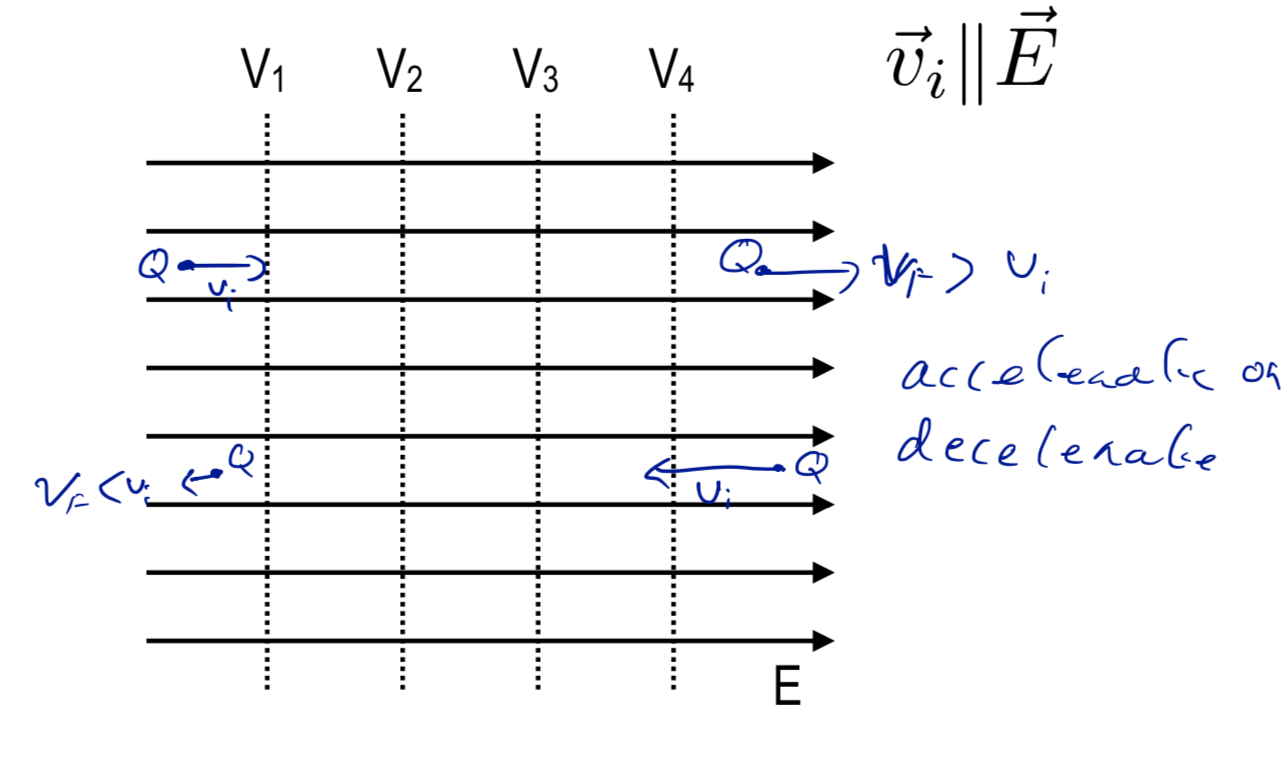 V₁ V₂ V₃ V₄
$\vec{v}_i \| \vec{E}$
Q v_i
Q v_F > v_i
accelerate or
decelerate
v_F < v_i Q
v_i Q
E